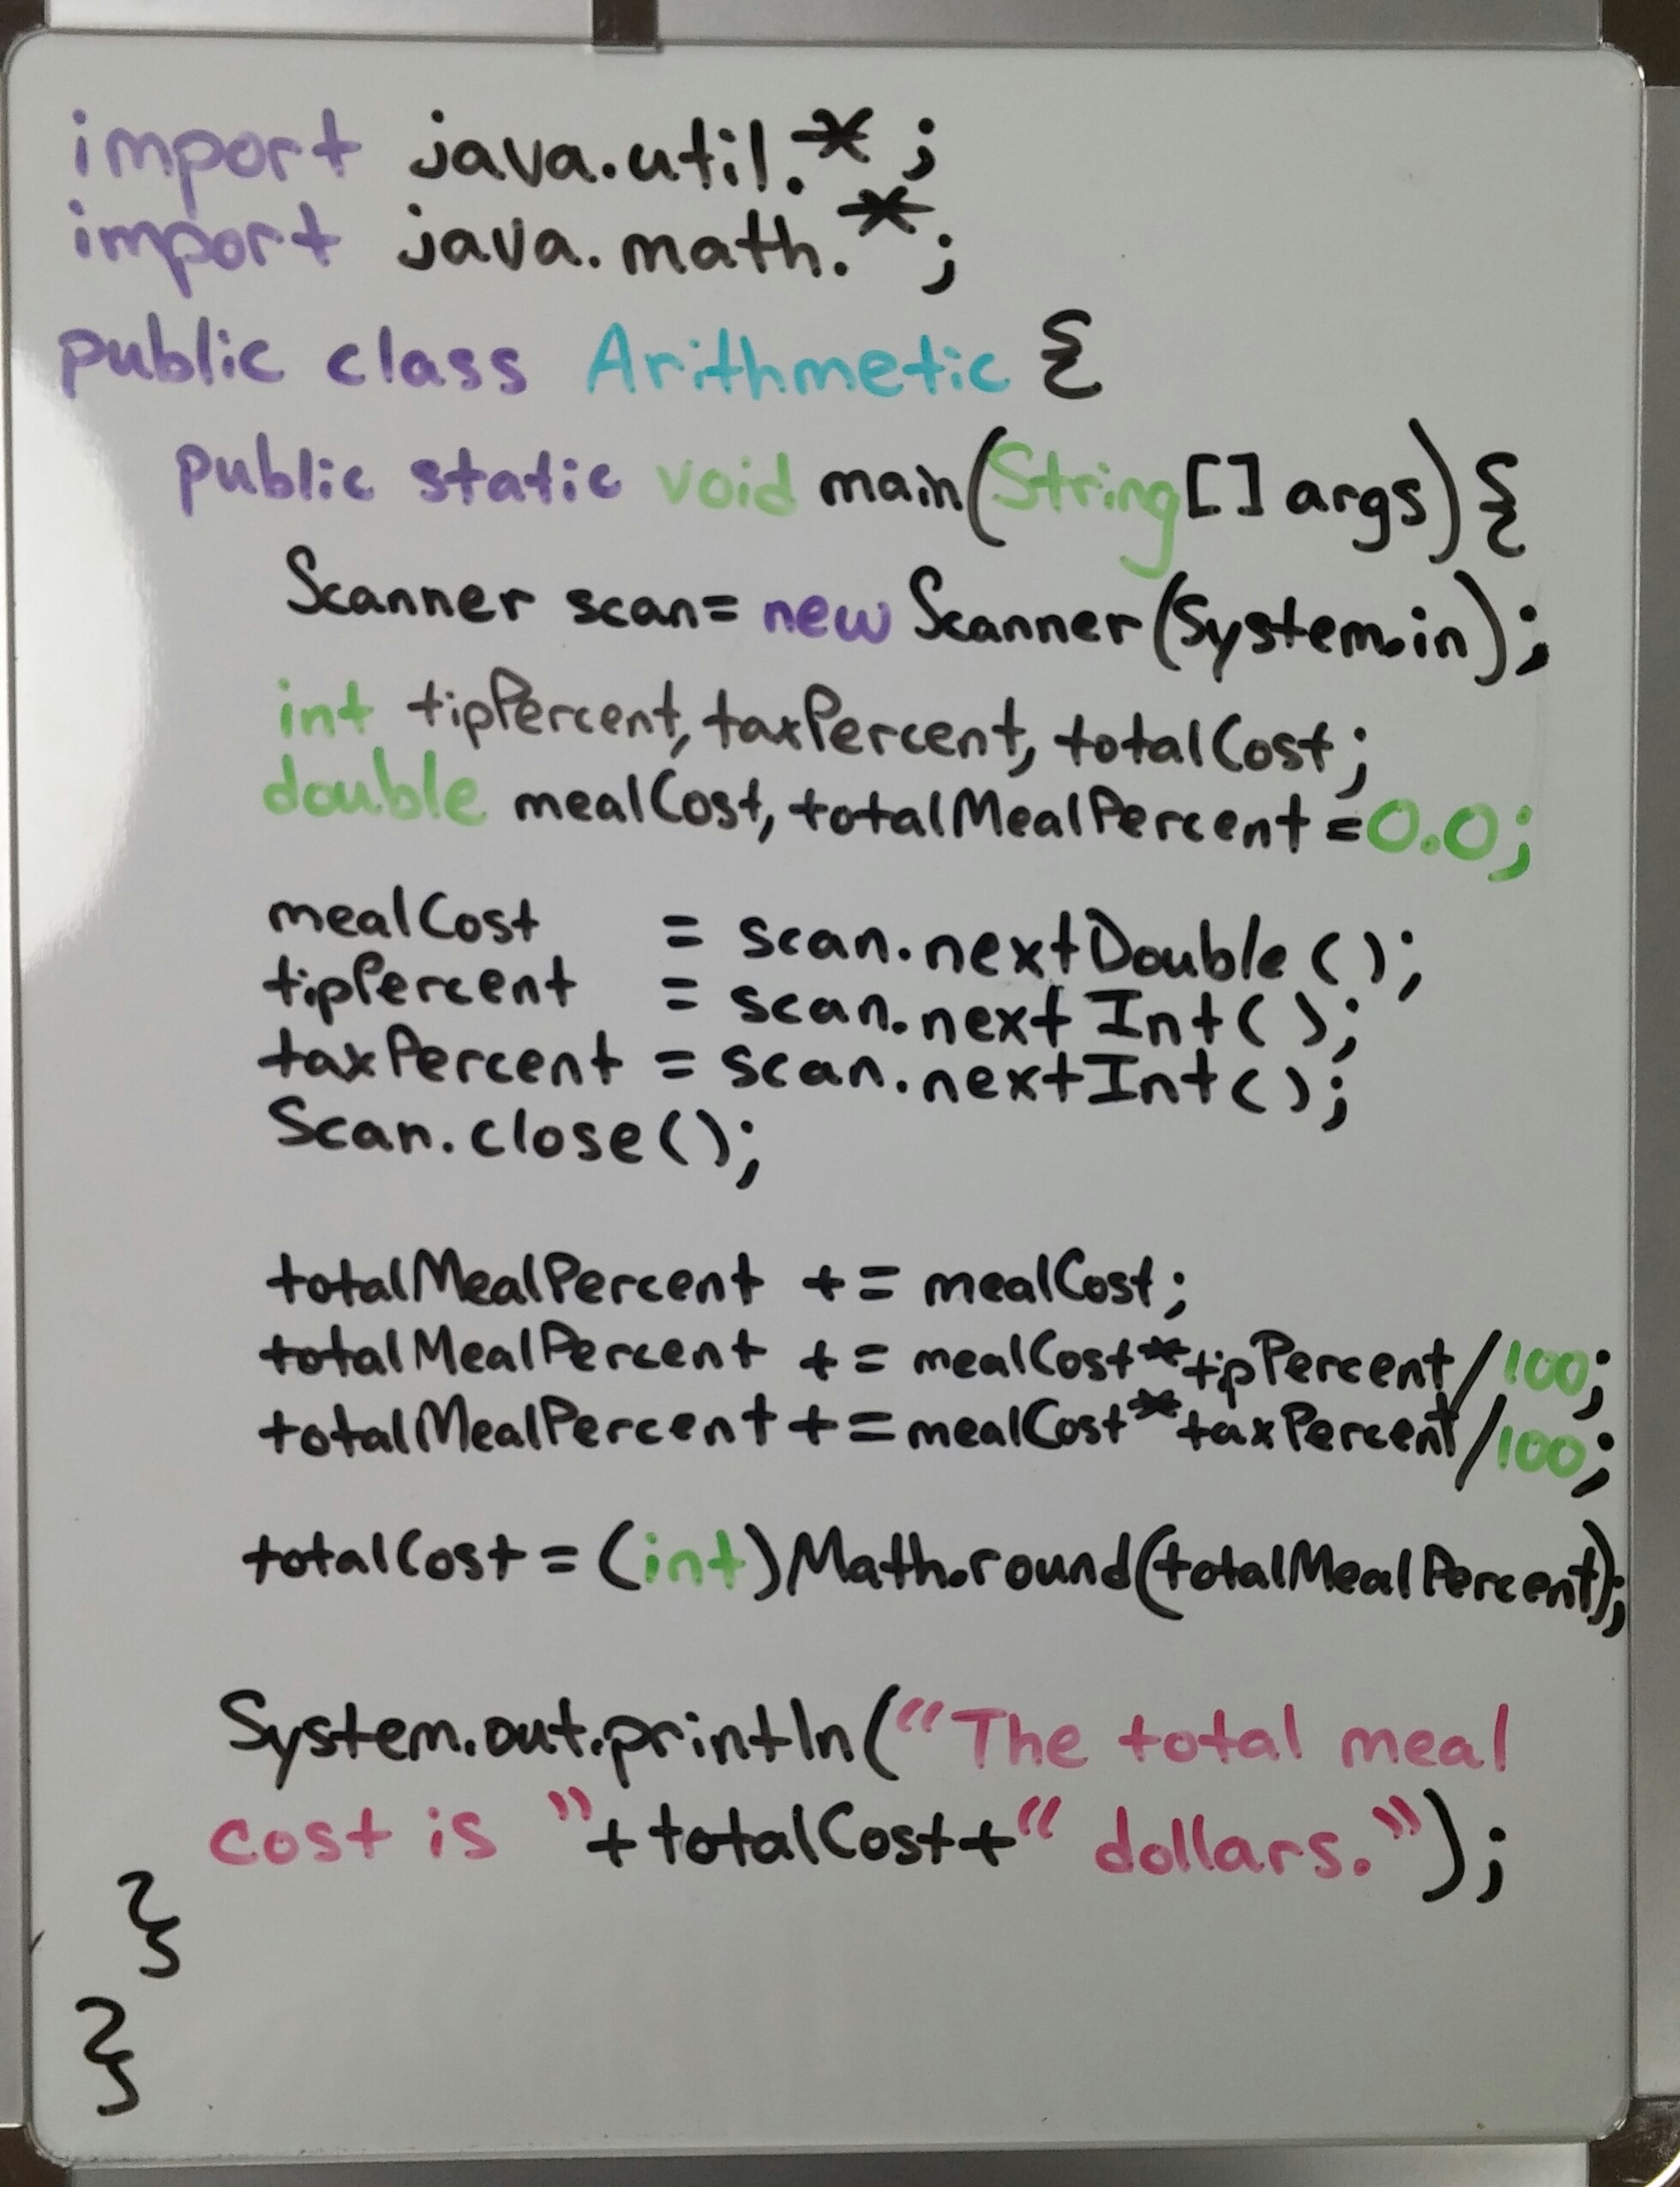 import java.util.*;
import java.math.*;
public class Arithmetic {
public static void main(String[] args){
Scanner scan= new Scanner(System.in);
int tipPercent, taxPercent, totalCost;
double mealCost, totalMealPercent =0.0;
mealCost = scan.nextDouble();
tipPercent = scan.nextInt();
taxPercent = scan.nextInt();
Scan.close();
totalMealPercent += mealCost;
totalMealPercent += mealCost*tipPercent/100;
totalMealPercent += mealCost*taxPercent/100;
totalCost = (int)Math.round(totalMealPercent);
System.out.println(“The total meal
cost is ”+totalCost+“ dollars.”);
}
}